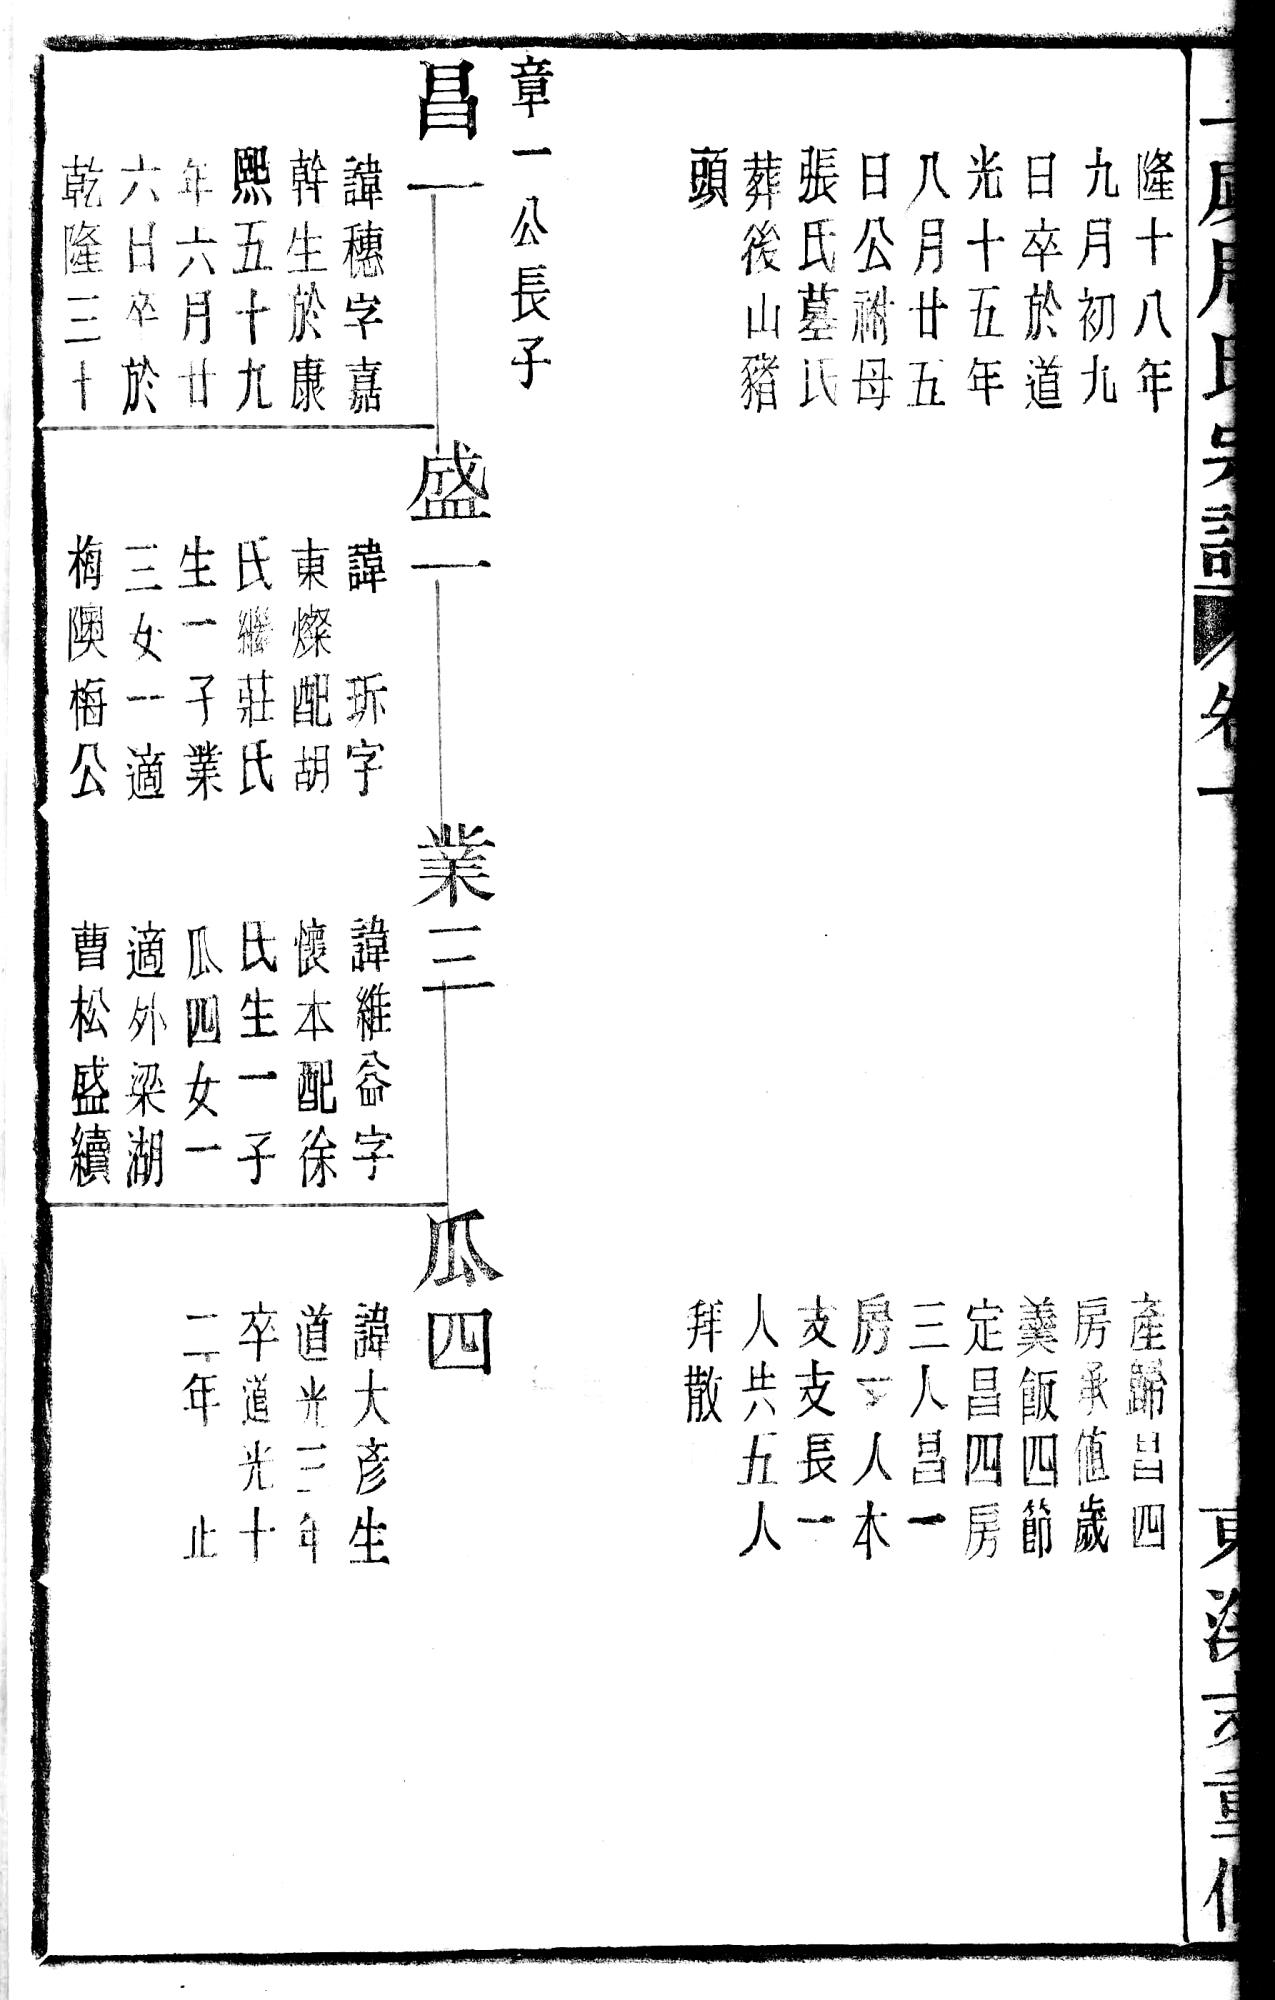 隆十八年
九月初九
日卒於道
光十五年
八月廿五
日公祔母
張氏墓氏
葬後山豬
頭
產歸昌四
房承值歲
羹飯四節
定昌四房
三人昌一
房一人本
支支長一
人共五人
拜散
章一公長子
昌一
諱穗字嘉
幹生於康
熙五十九
年六月廿
六日卒於
乾隆三十
盛一
諱 珎字
東燦配胡
氏繼莊氏
生一子業
三女一適
梅隩梅公
業三
諱維益字
懷本配徐
氏生一子
瓜四女一
適外梁湖
曹松盛續
瓜四
諱大彥生
道光三年
卒道光十
二年 止